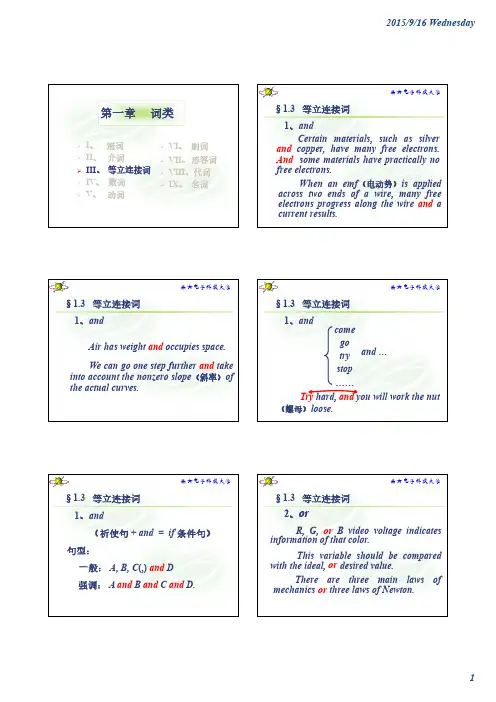 2015/9/16 Wednesday
第一章 词类
I、 冠词
II、 介词
III、 等立连接词
IV、 数词
V、 动词
VI、 副词
VII、 形容词
VIII、代词
IX、 名词
西安电子科技大学
§1.3 等立连接词
1、and
Certain materials, such as silver
and copper, have many free electrons.
And some materials have practically no
free electrons.
When an emf（电动势）is applied
across two ends of a wire, many free
electrons progress along the wire and a
current results.
西安电子科技大学
§1.3 等立连接词
1、and
Air has weight and occupies space.
We can go one step further and take
into account the nonzero slope（斜率）of
the actual curves.
西安电子科技大学
§1.3 等立连接词
1、and
come
go
try
stop
……
and …
Try hard, and you will work the nut
（螺母）loose.
西安电子科技大学
§1.3 等立连接词
1、and
（祈使句 + and = if 条件句）
句型：
一般： A, B, C(,) and D
强调： A and B and C and D.
西安电子科技大学
§1.3 等立连接词
2、or
R, G, or B video voltage indicates
information of that color.
This variable should be compared
with the ideal, or desired value.
There are three main laws of
mechanics or three laws of Newton.
1